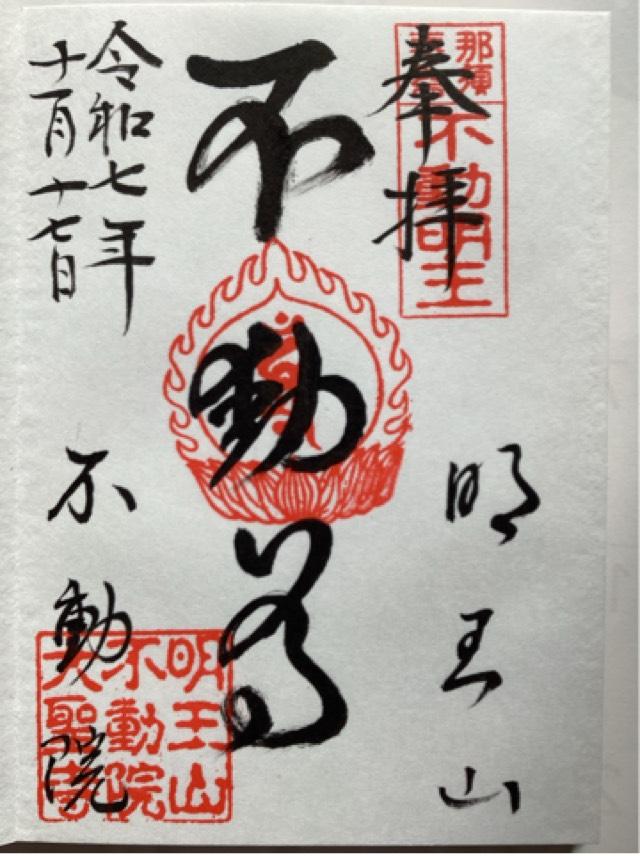 奉拝
那須
不動明王
明王山
不動尊
令和七年
十一月十七日
不動院
明王山
不動院
大聖